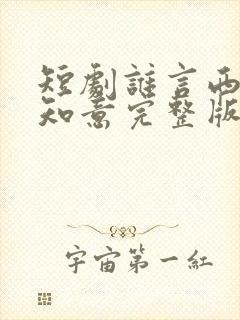 短劇誰言西
知意完整版
宇宙第一紅